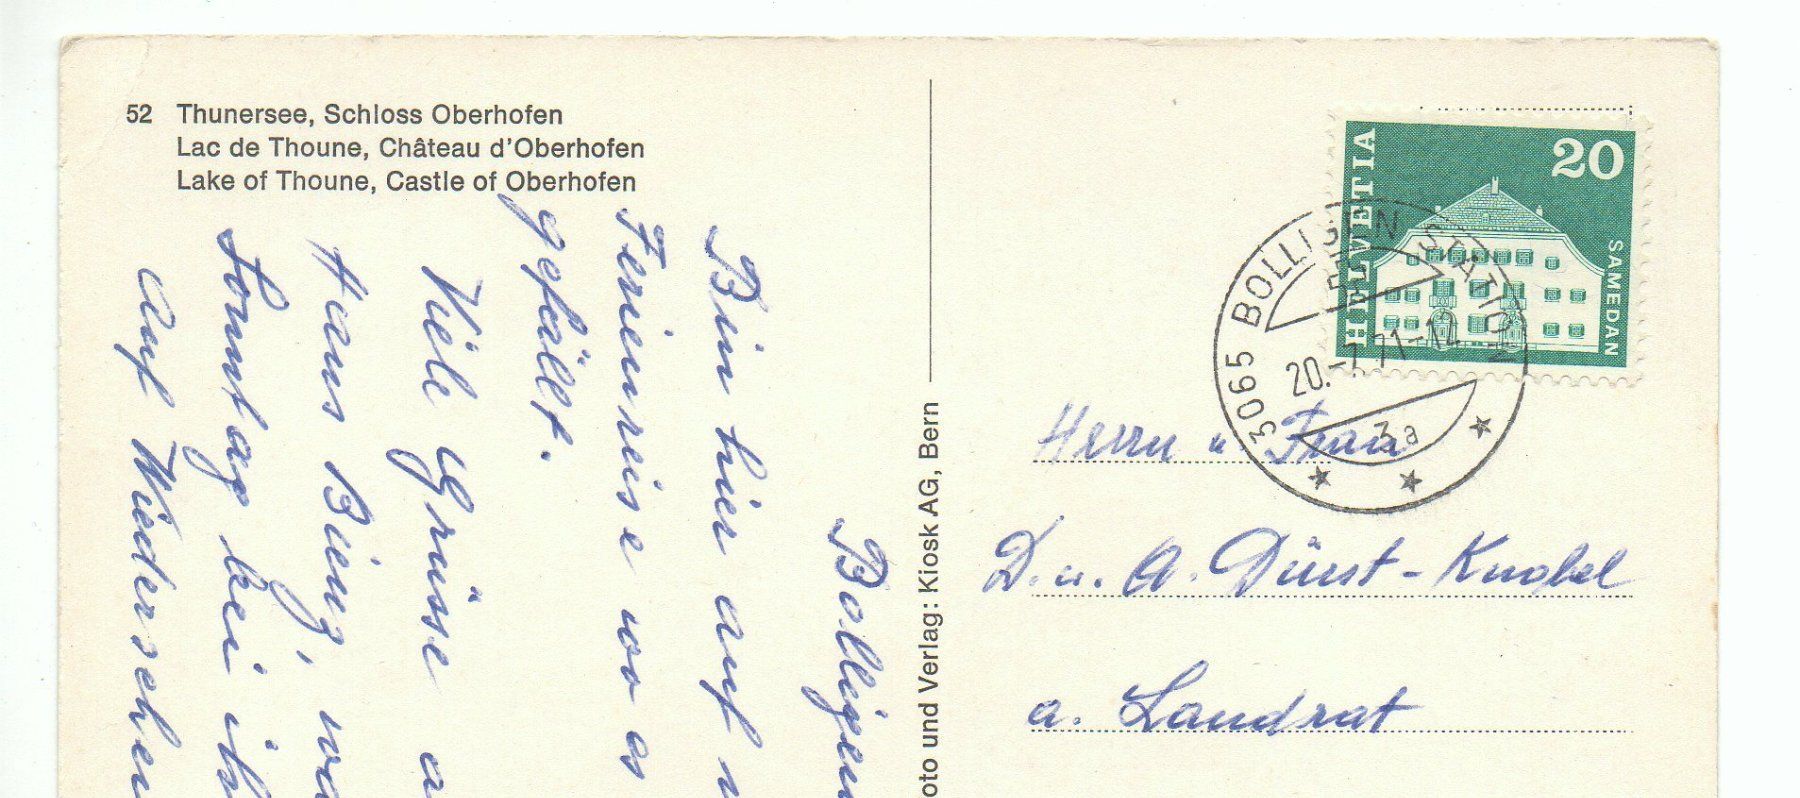 52 Thunersee, Schloss Oberhofen
Lac de Thoune, Château d'Oberhofen
Lake of Thoune, Castle of Oberhofen
Bolligen
Bin hier auf
Ferienreise wo es
gefällt.
Viele Grüsse a
Hans
Sonntag bei ih
Auf Wiedersehen
oto und Verlag: Kiosk AG, Bern
HELVETIA
20
SAMEDAN
3065 BOLLIGEN STATION
20.-7.71-12
a
Herrn u. Frau
D. u. A. Dürst-Knobel
a. Landrat